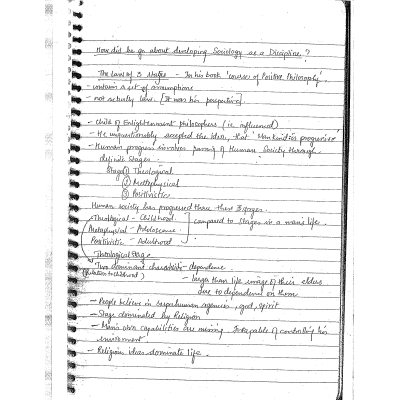 How did he go about developing Sociology as a Discipline?
The Law of 3 stages - In his book 'Course of Positive Philosophy'.
- contains a set of assumptions
- not actually law. [It was his perspective]
- Child of Enlightenment philosophers (ie influenced)
- He unquestionably accepted the idea, that 'Mankind is progressive'
- Human progress involves passing of Human Society through
definite stages.
Stage ① Theological
② Metaphysical
③ Positivistic
Human society has progressed three these 3 stages.
Theological - Childhood
Metaphysical - Adolescence
Positivistic - Adulthood
compared to Stages in a man's life.
Theological Stage
Two dominant characteristic - dependence.
(Relation to childhood)
- larger than life image of their elders
due to dependence on them
- People believe in superhuman agencies, god, spirit
- Stage dominated by Religion
- Man's own capabilities are missing. Incapable of controlling his
environment
- Religious ideas dominate life.